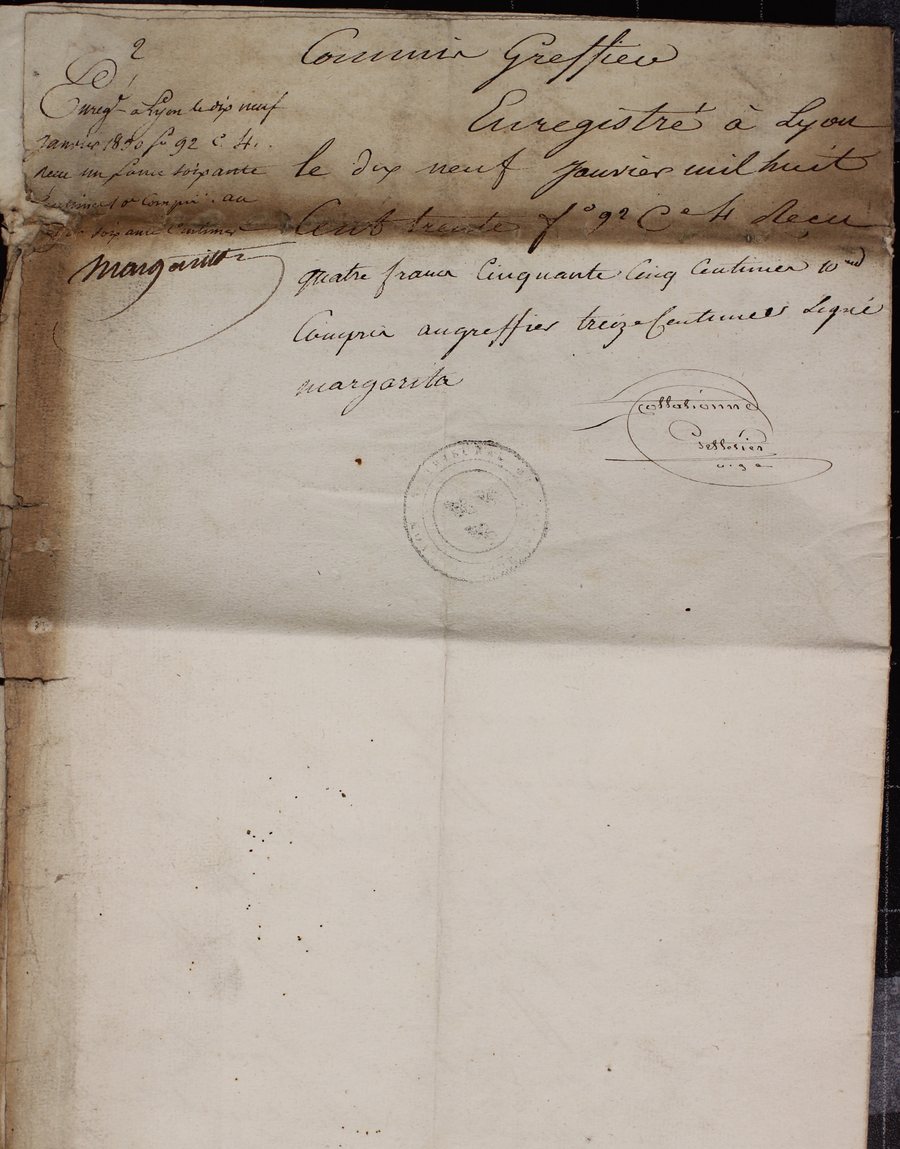 2
Enreg.t à Lyon le dix neuf
janvier 1830 fo 92 C 4.
Recu un franc soixante
compris au
soixante Centimes
Margarita
Commis Greffier
Enregistré à Lyon
le dix neuf janvier mil huit
Cent trente f.o 92 C.e 4 Reçu
quatre francs Cinquante Cinq Centimes
Compris au greffier treize Centimes Signé
margarita
Collationné
Pelletier
TRIBUNAL